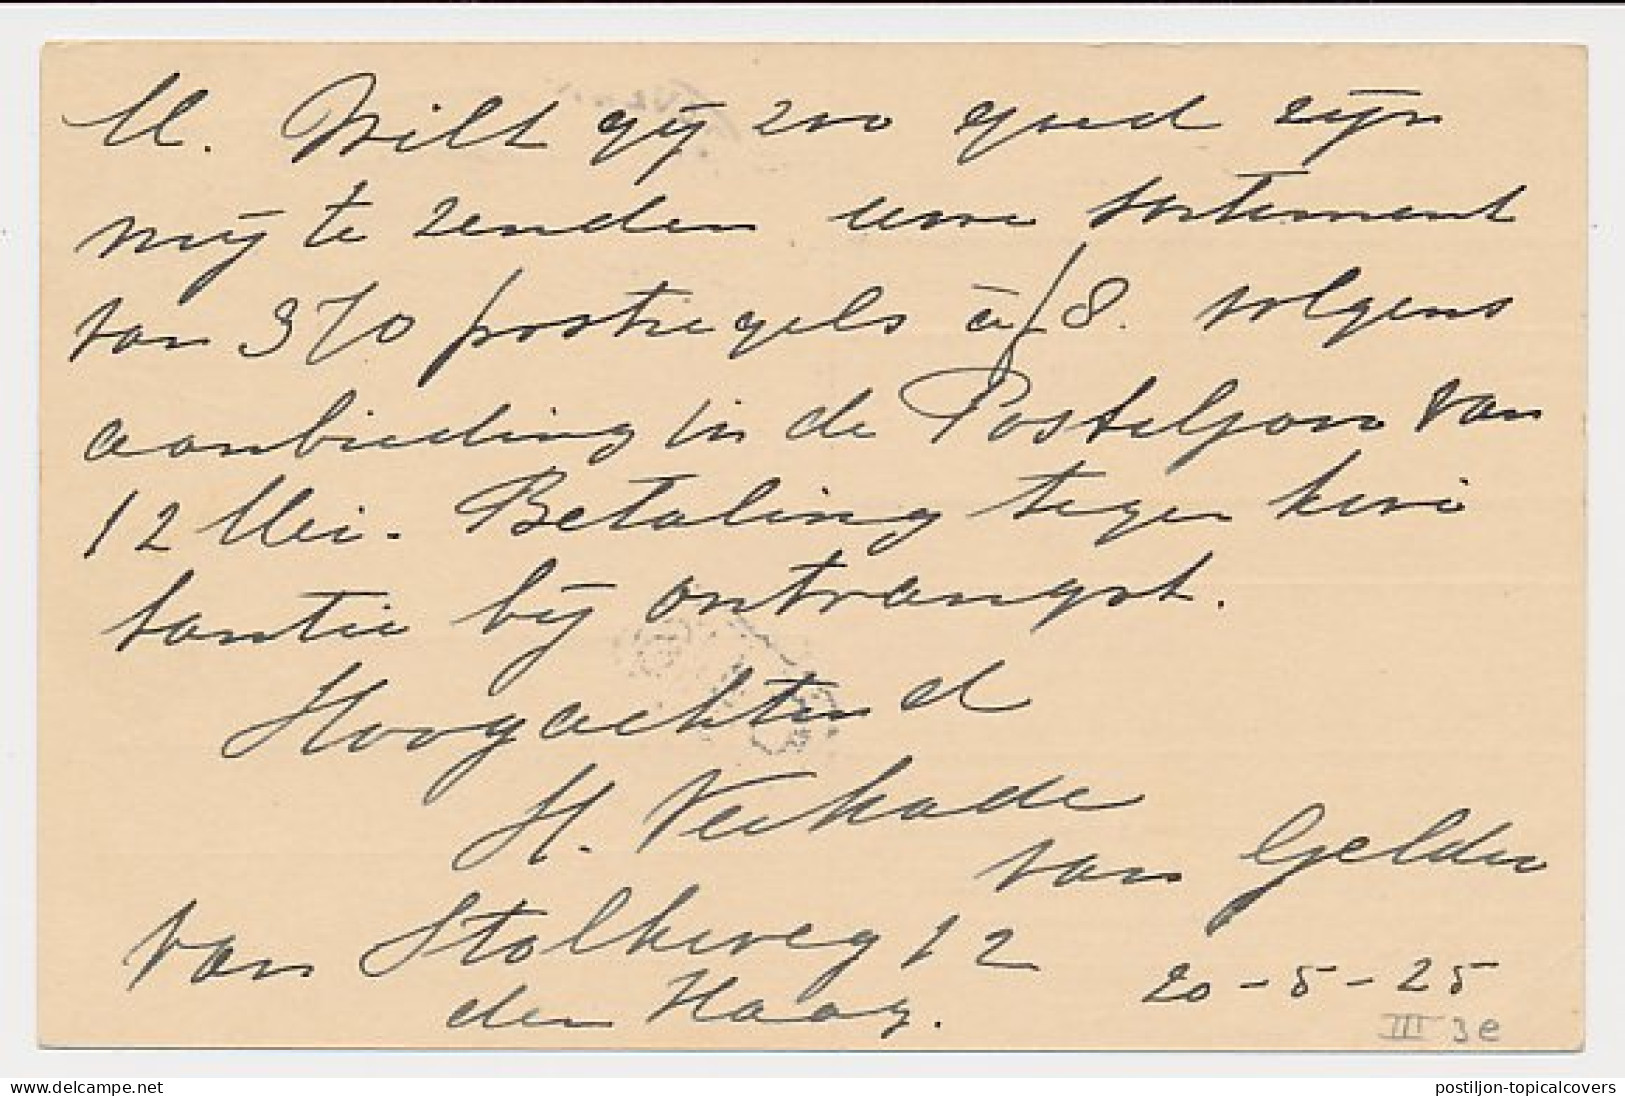 M. Wilt gij zoo goed zijn
mij te zenden uwe sortiment
van 370 postzegels à f 8. volgens
aanbieding in de Posteljon van
12 Mei. Betaling tegen kwi
tantie bij ontvangst.
Hoogachtend
H. Verkade
van Gelder
van Stolkweg 12
den Haag.
20-5-25
III 3e
delcampe.net
postiljon-topicalcovers